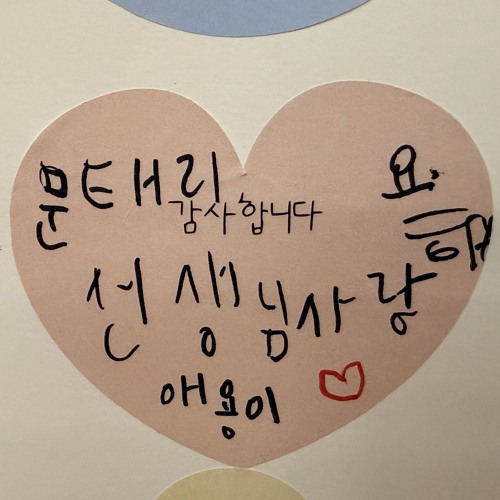 문태리
감사합니다
선생님사랑
해
요.
애용이